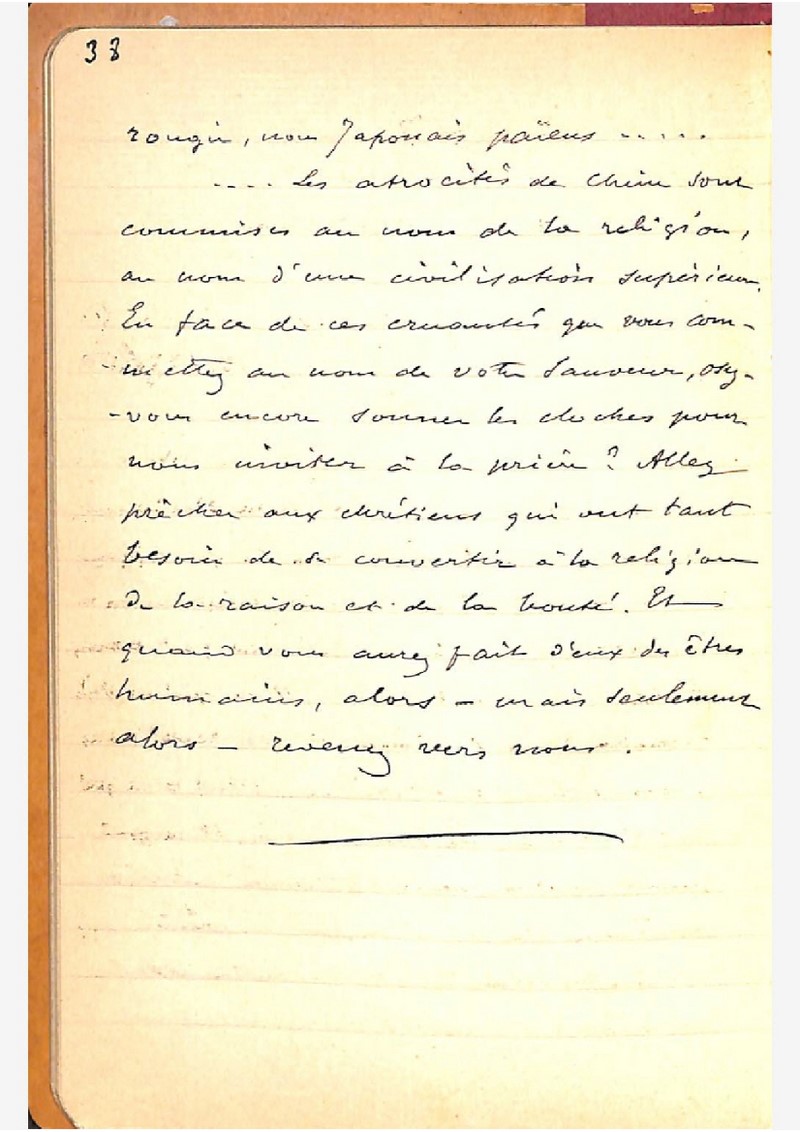 38
rougir, nous Japonais païens .....
.... Les atrocités de Chine sont
commises au nom de la religion,
au nom d'une civilisation supérieure.
En face de ces cruautés que vous com-
-mettez au nom de votre Sauveur, osez-
-vous encore sonner les cloches pour
nous inviter à la prière ? Allez
prêcher aux chrétiens qui ont tant
besoin de se convertir à la religion
de la raison et de la bonté. Et
quand vous aurez fait d'eux des êtres
humains, alors – mais seulement
alors – revenez vers nous.